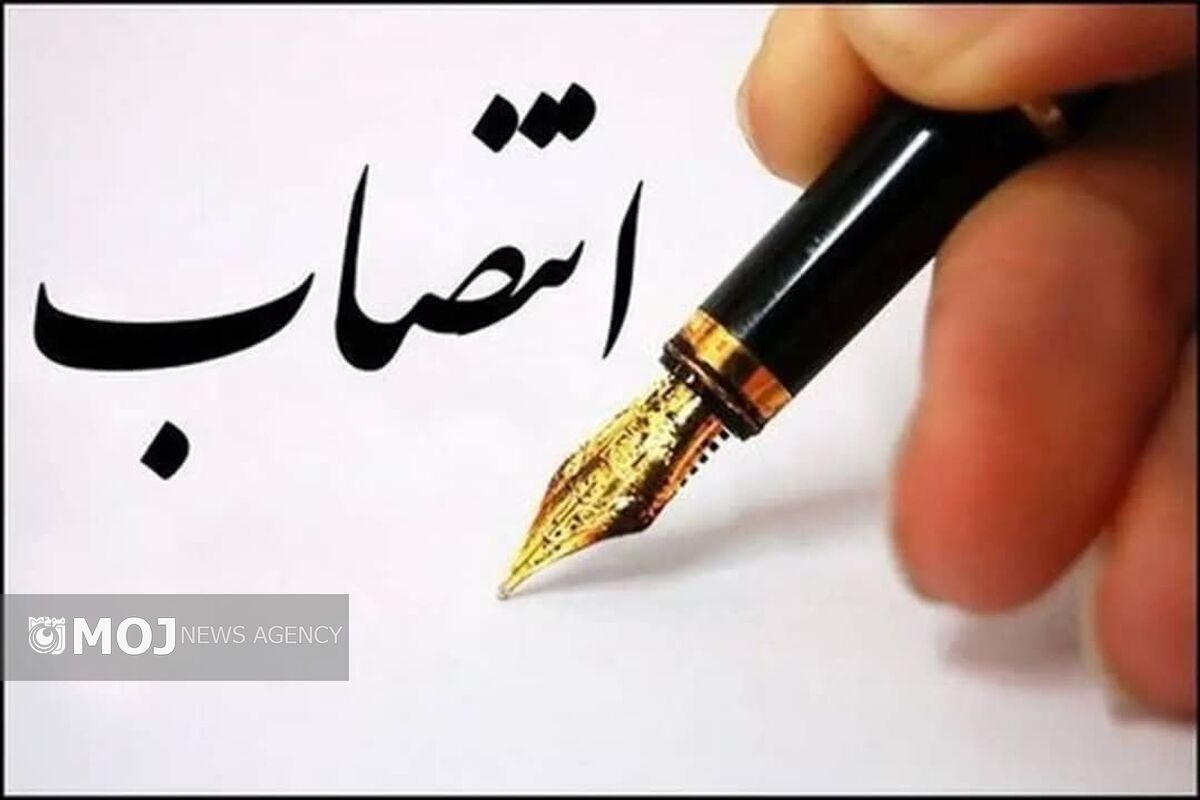 انتصاب
موج MOJ NEWS AGENCY